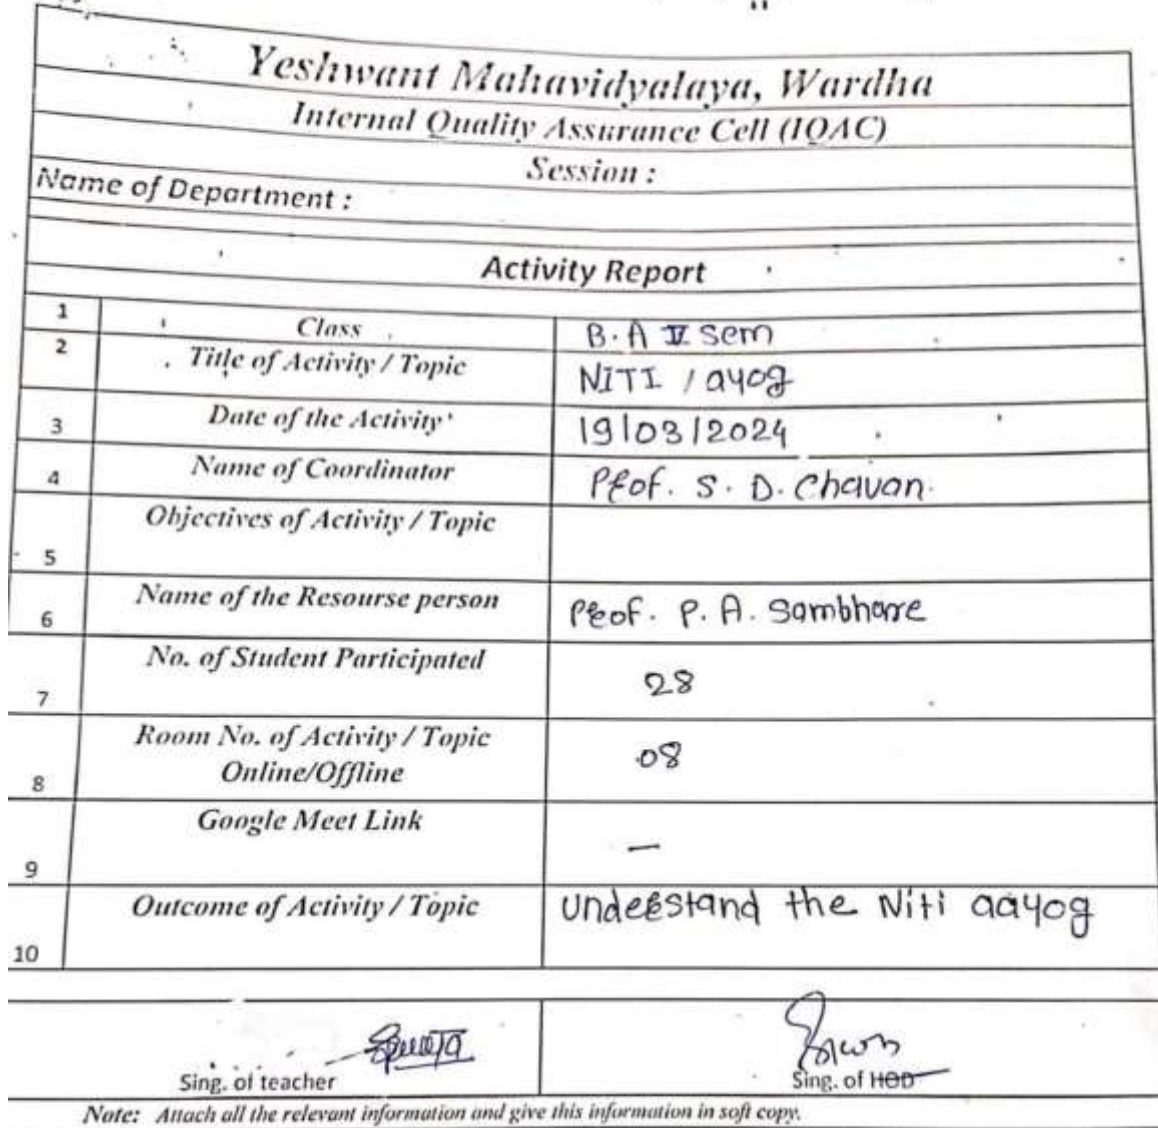 Yeshwant Mahavidyalaya, Wardha
Internal Quality Assurance Cell (IQAC)
Session :
Name of Department :
Activity Report
1 Class B.A IV Sem
2 Title of Activity / Topic NITI / ayog
3 Date of the Activity 19/03/2024
4 Name of Coordinator Prof. S. D. Chavan.
5 Objectives of Activity / Topic
6 Name of the Resourse person Prof. P. A. Sambhare
7 No. of Student Participated 28
8 Room No. of Activity / Topic 08
Online/Offline
9 Google Meet Link —
10 Outcome of Activity / Topic Understand the Niti aayog
Sing. of teacher Sing. of HOD
Note: Attach all the relevant information and give this information in soft copy.